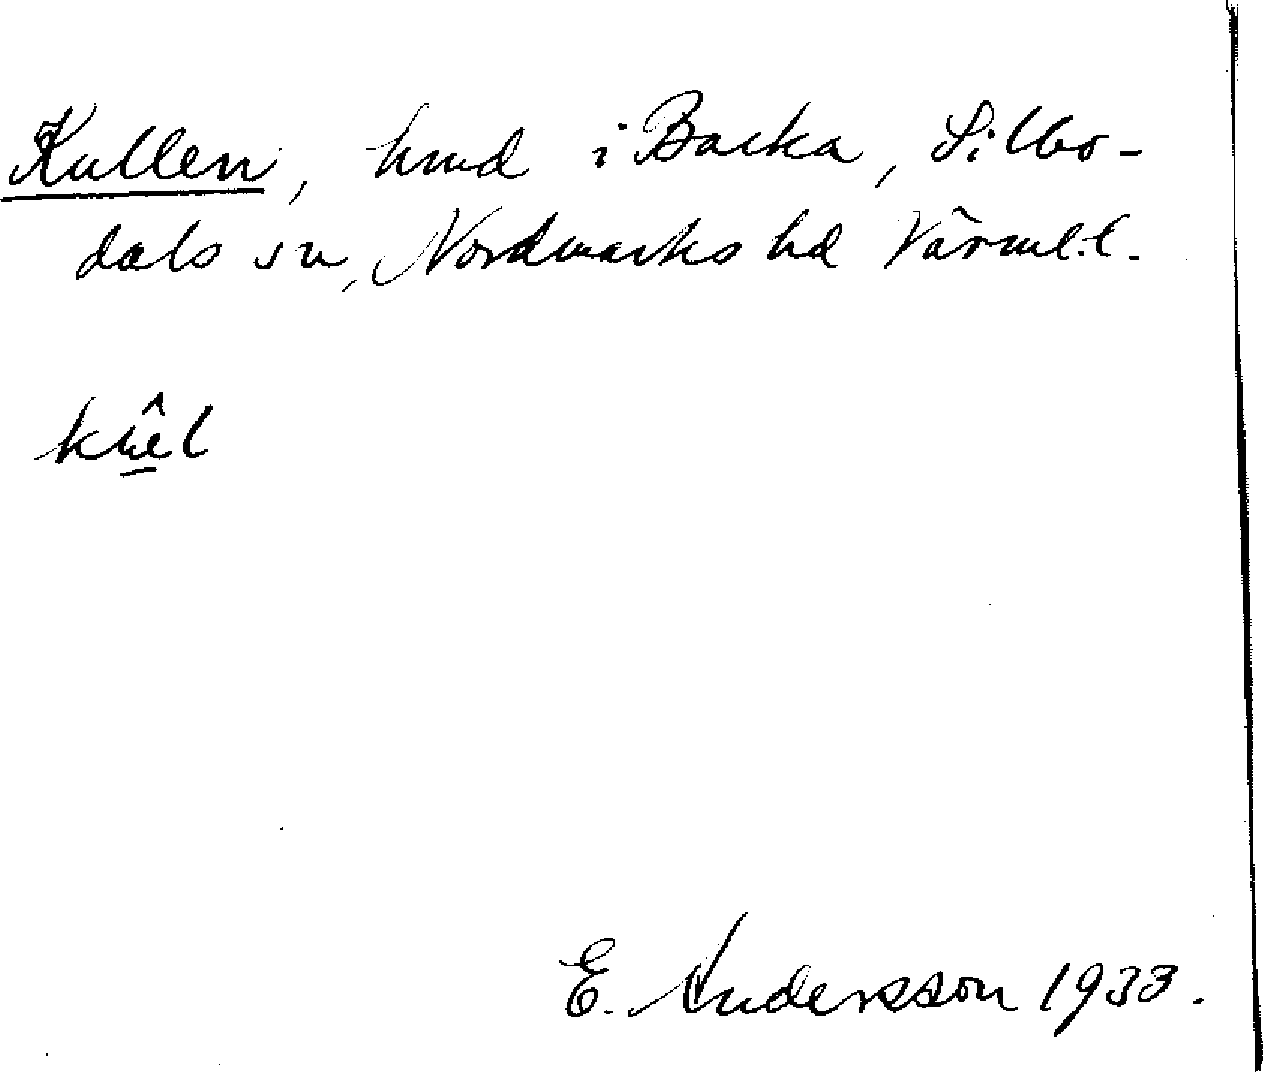 Kullen, hund i Backa, Silbo-
dals sn, Nordmarks hd Värml.l.
E. Andersson 1933.